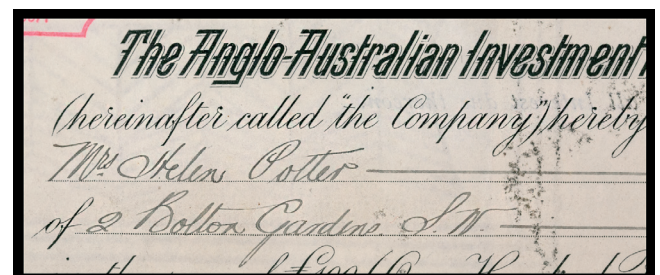 The Anglo-Australian Investment
(hereinafter called "the Company,") hereby
Mrs Helen Potter
of 2 Bolton Gardens. S.W.